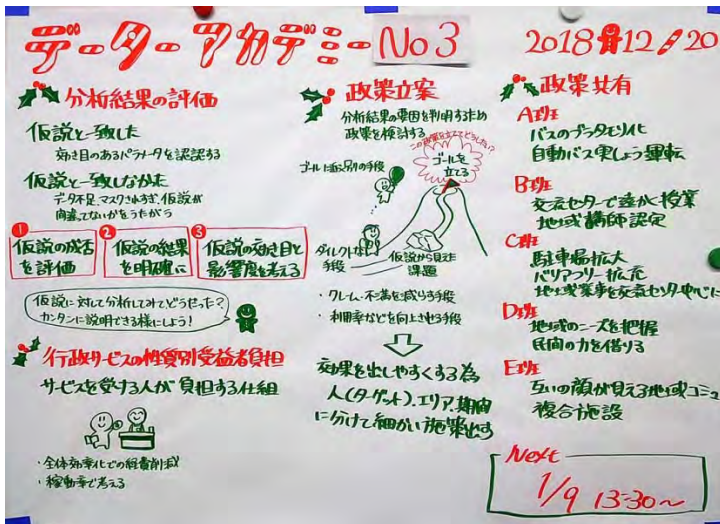 データーアカデミー No 3
2018 12/20
分析結果の評価
仮説と一致した
効き目のあるパラメータを認認する
仮説と一致しなかった
データ不足、マスクされすぎ、仮説が
間違ってないかをうたがう
1 仮説の成否
を評価
2 仮説の結果
を明確に
3 仮説の効き目と
影響度を考える
仮説に対して分析してみてどうだった?
カンタンに説明できる様にしよう!
行政サービスの性質別受益者負担
サービスを受ける人が負担する仕組
・全体効率化での経費削減
・稼動率で考える
政策立案
分析結果の要因を判明するため
政策を検討する
この政策を立ててどうしたい?
ゴールを
立てる
ゴールに 別の手段
ダイレクトな
手段
仮説から見えた
課題
・クレーム・不満を減らす手段
・利用率などを向上させる手段
効果を出しやすくする為
人(ターゲット)、エリア、期間
に分けて細かい施策出す
政策共有
A班
バスのプラタモリ化
自動バス実しょう運転
B班
交流センターで遠かく授業
地域講師認定
C班
駐車場拡大
バリアフリー拡充
地域業事を交流センター中心に
D班
地域のニーズを把握
民間の力を借りる
E班
互いの顔が見える地域コミュ
複合施設
Next
1/9 13:30~